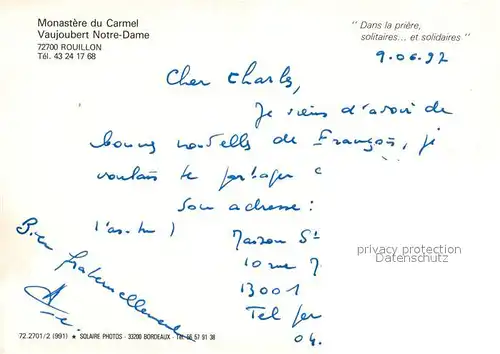 Monastère du Carmel
Vaujoubert Notre-Dame
72700 ROUILLON
Tél. 43 24 17 68
" Dans la prière,
solitaires... et solidaires "
9.06.92
Cher Charles,
Je viens d'avoir de
bonnes nouvelles de François, je
voulais te partager
Son adresse :
l'as-tu )
Maison St
10 rue J
13001
Tel per
04.
Bien fraternellement
privacy protection
Datenschutz
72.2701/2 (991) ★ SOLAIRE PHOTOS - 33200 BORDEAUX - Tél. 56 57 91 38